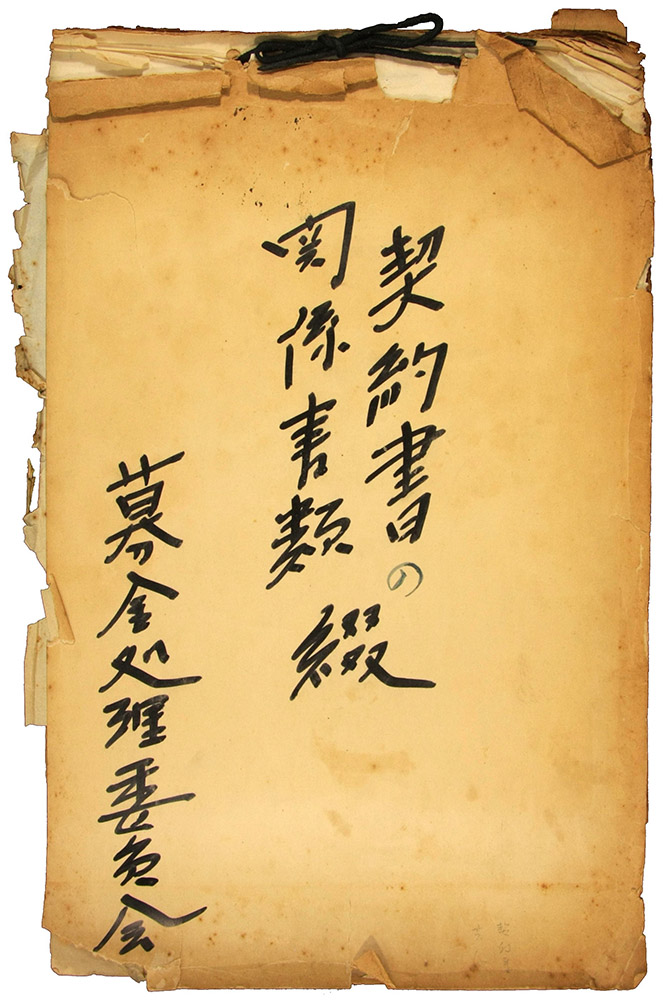 契約書の
関係書類
綴
募金処理委員会